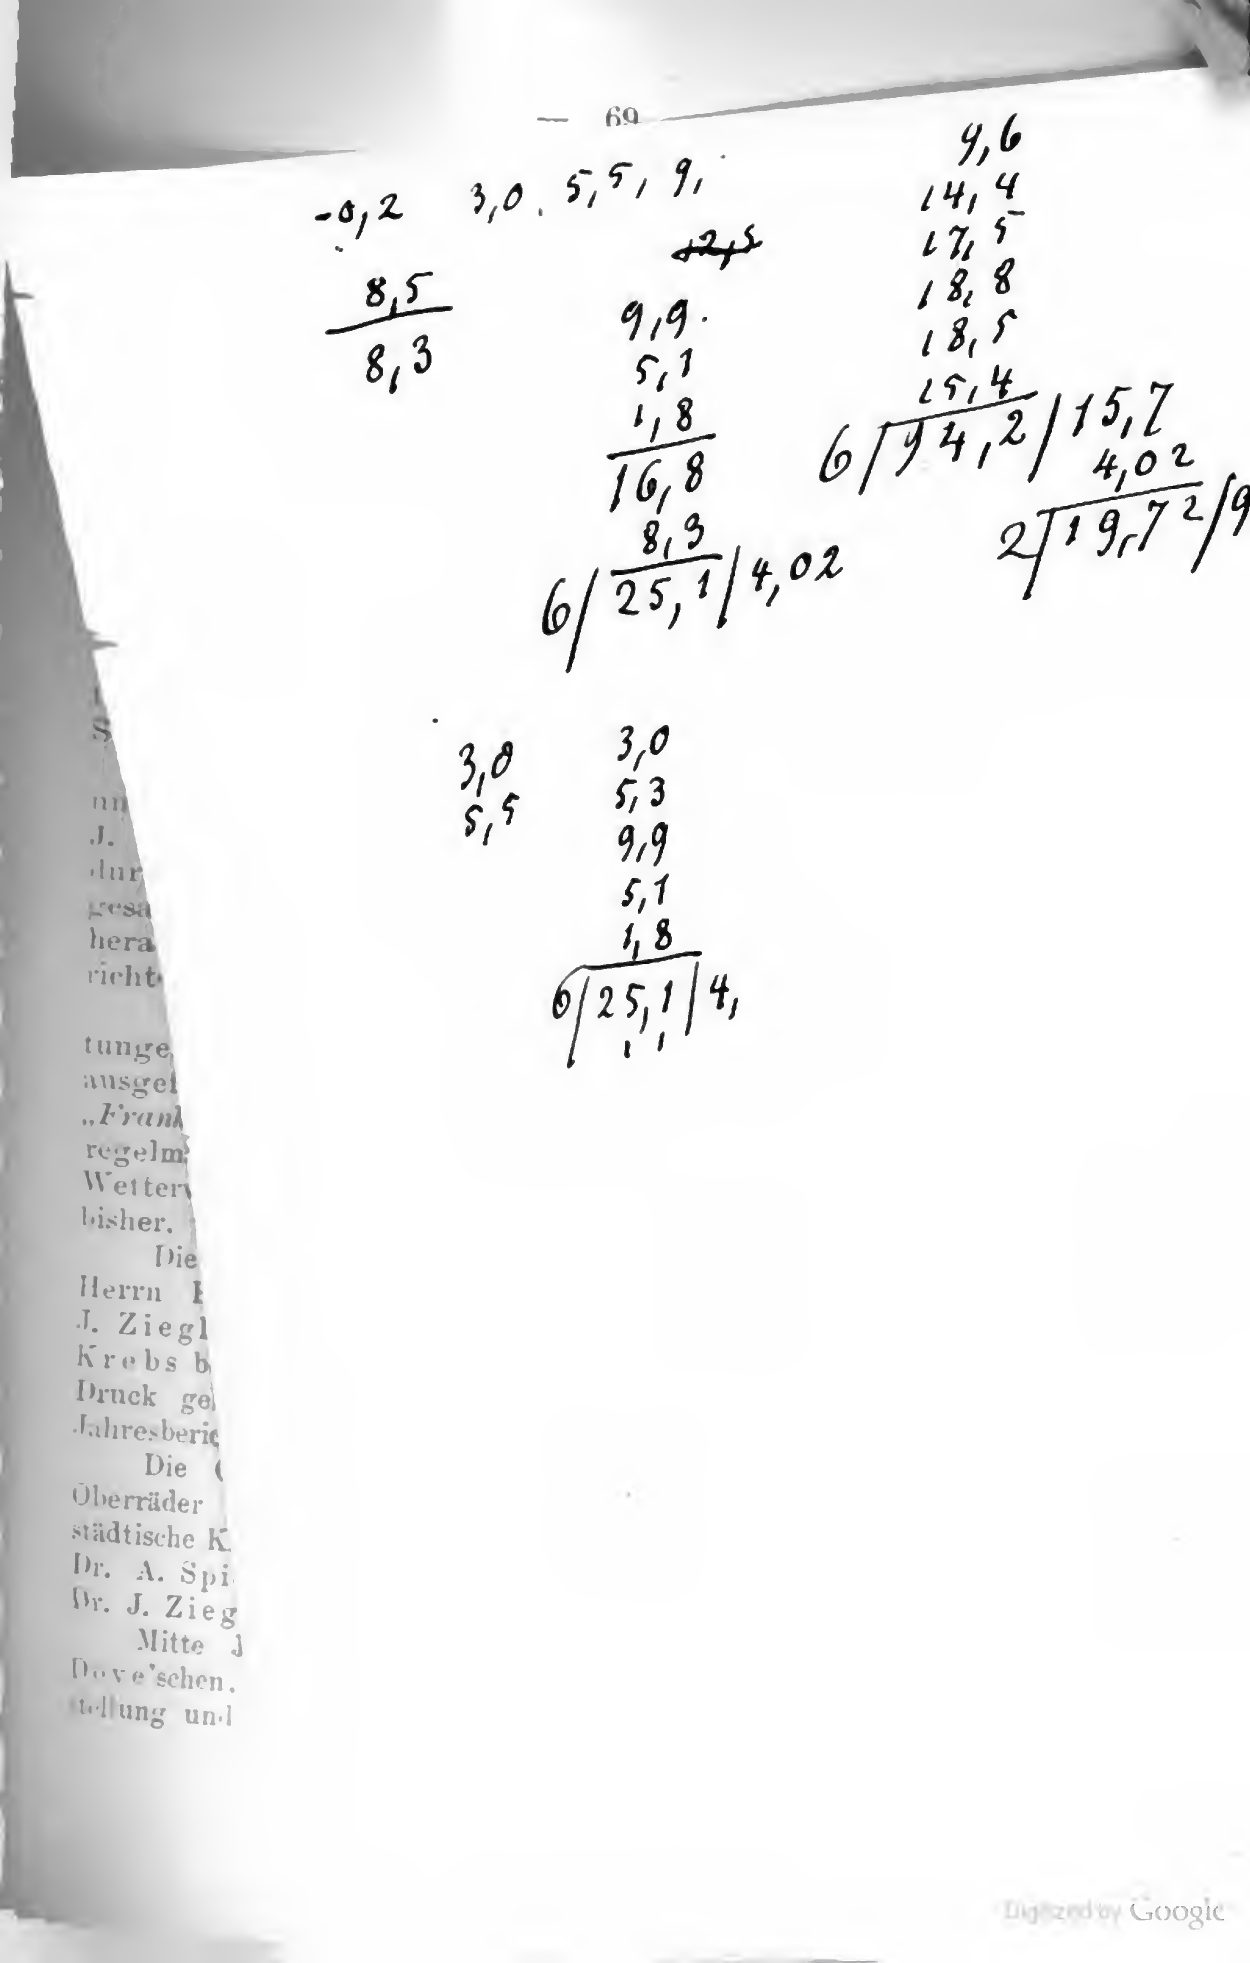 — 69
-0,2 3,0. 5,5, 9,
8,5
8,3
12,5
9,9.
5,1
1,8
16,8
8,3
6/25,1/4,02
9,6
14,4
17,5
18,8
18,5
15,4
6/94,2/15,7
4,02
2/19,72/9
3,0
5,5
3,0
5,3
9,9
5,1
1,8
6/25,1/4,
S
J.
dur
gesa
hera
richt
tunge
ausgef
„Frank
regelm
Wetterv
bisher.
Die
Herrn
J. Ziegl
Krebs b
Druck ge
Jahresberic
Die
Oberräder
städtische K.
Dr. A. Spi
Dr. J. Zieg
Mitte J
Dove'schen.
stellung und
Digitized by Google